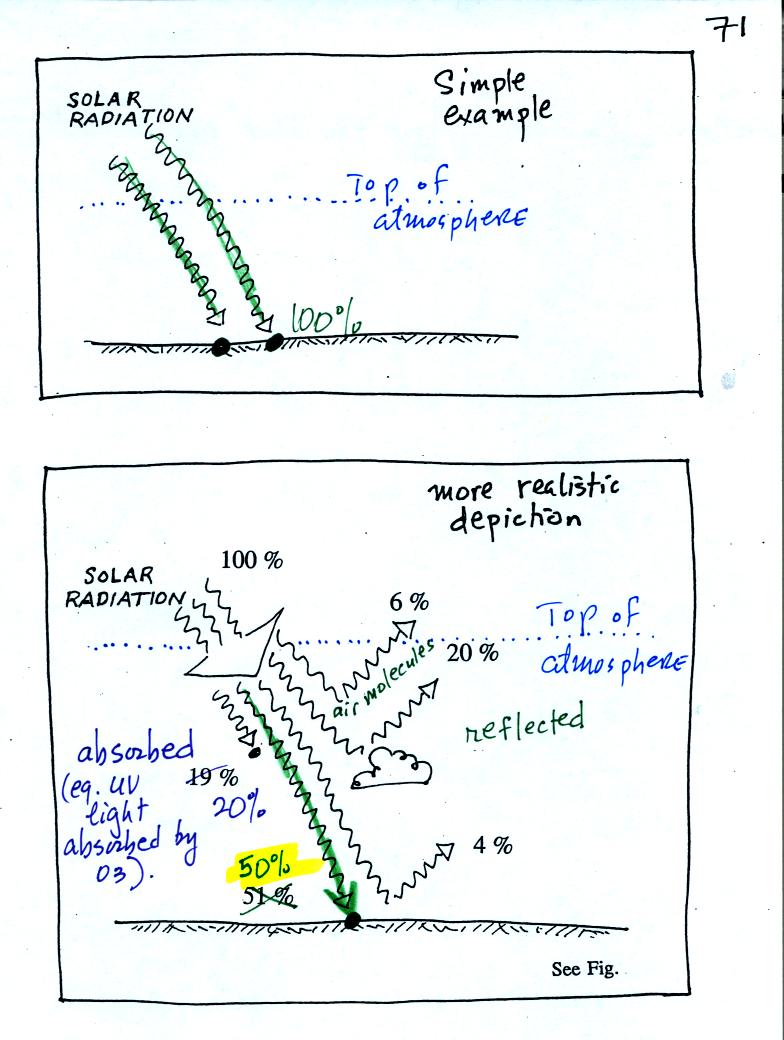 71
Simple
example
SOLAR
RADIATION
Top of
atmosphere
100%
more realistic
depiction
100 %
SOLAR
RADIATION
6 %
Top of
atmosphere
20 %
air molecules
reflected
absorbed
(eg. UV
light
absorbed by
O3).
19 %
20%
4 %
50%
51 %
See Fig.